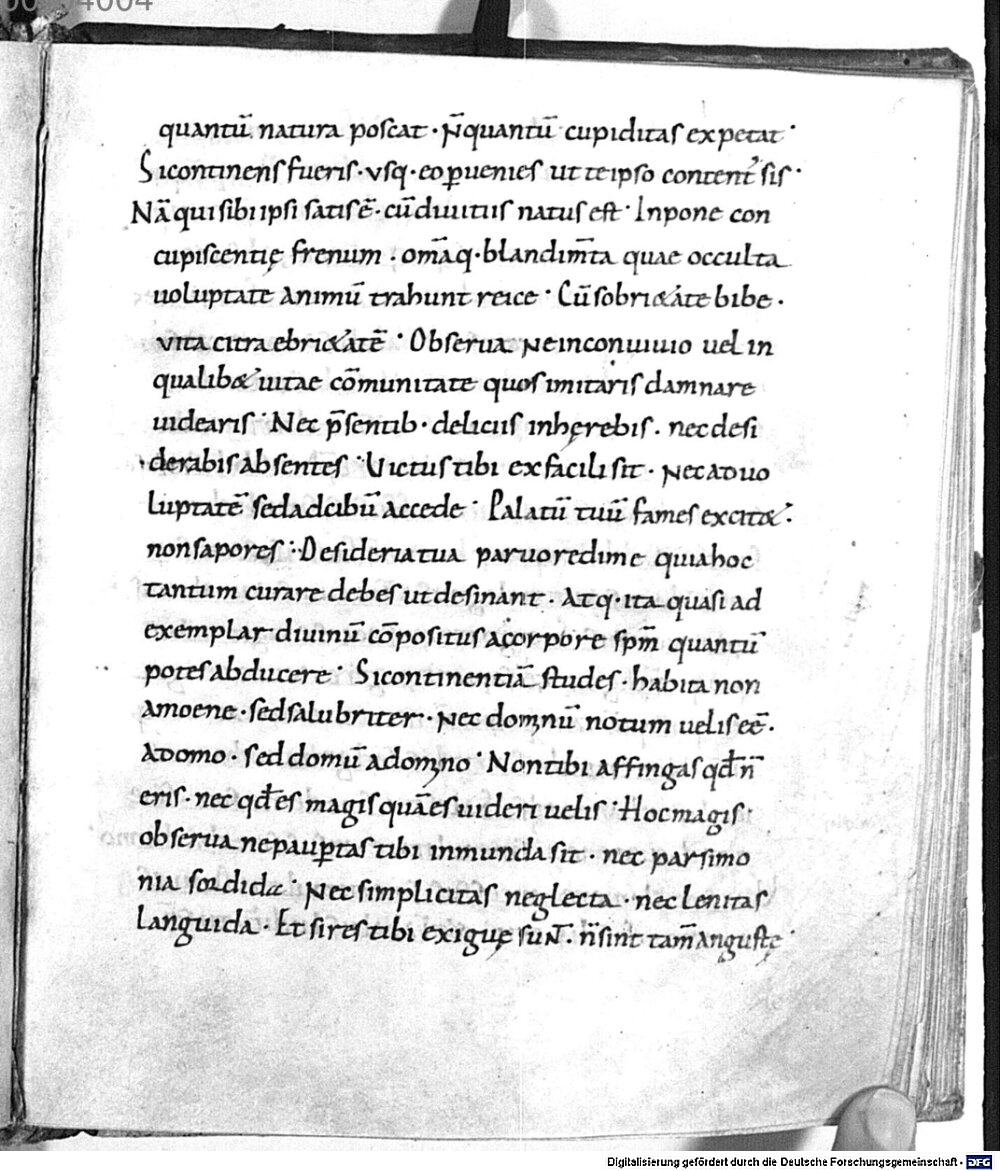 quantū natura poscat · N̄ quantū cupiditas expetat ·
Si continens fueris · vsq· eo ꝑuenies ut te ipso content' sis ·
Nā qui sibi ipsi satis ē · cū diuitiis natus est · Inpone con
cupiscentię frenum · om̄aq· blandim̄ta quae occulta
uoluptate animū trahunt reice · Cū sobri&ate bibe ·
vita citra ebri&atē · Obserua ne in conuiuio uel in
qualib& uitae cōmunitate quos imitaris damnare
uidearis · Nec p̄sentib· deliciis inhęrebis · nec desi
derabis absentes · Uictus tibi ex facili sit · nec ad uo
luptatē sed ad cibū accede · Palatū tuū fames excit& ·
non sapores · Desideria tua paruo redime quia hoc
tantum curare debes ut desinant · Atq· ita quasi ad
exemplar diuinū cōpositus a corpore sp̄m quantū
potes abducere · Si continentiā studes · habita non
amoene · sed salubriter · Nec domnū notum uelis eē ·
a domo · sed domū a domno · Non tibi affingas qđ n̄
eris · nec qđ es magis quā es uideri uelis · Hoc magis
obserua ne pauꝑtas tibi inmunda sit · nec parsimo
nia sordida · Nec simplicitas neglecta · nec lenitas
languida · Et si res tibi exiguę sunt · n̄ sint tam̄ angustę ·
Digitalisierung gefördert durch die Deutsche Forschungsgemeinschaft - DFG